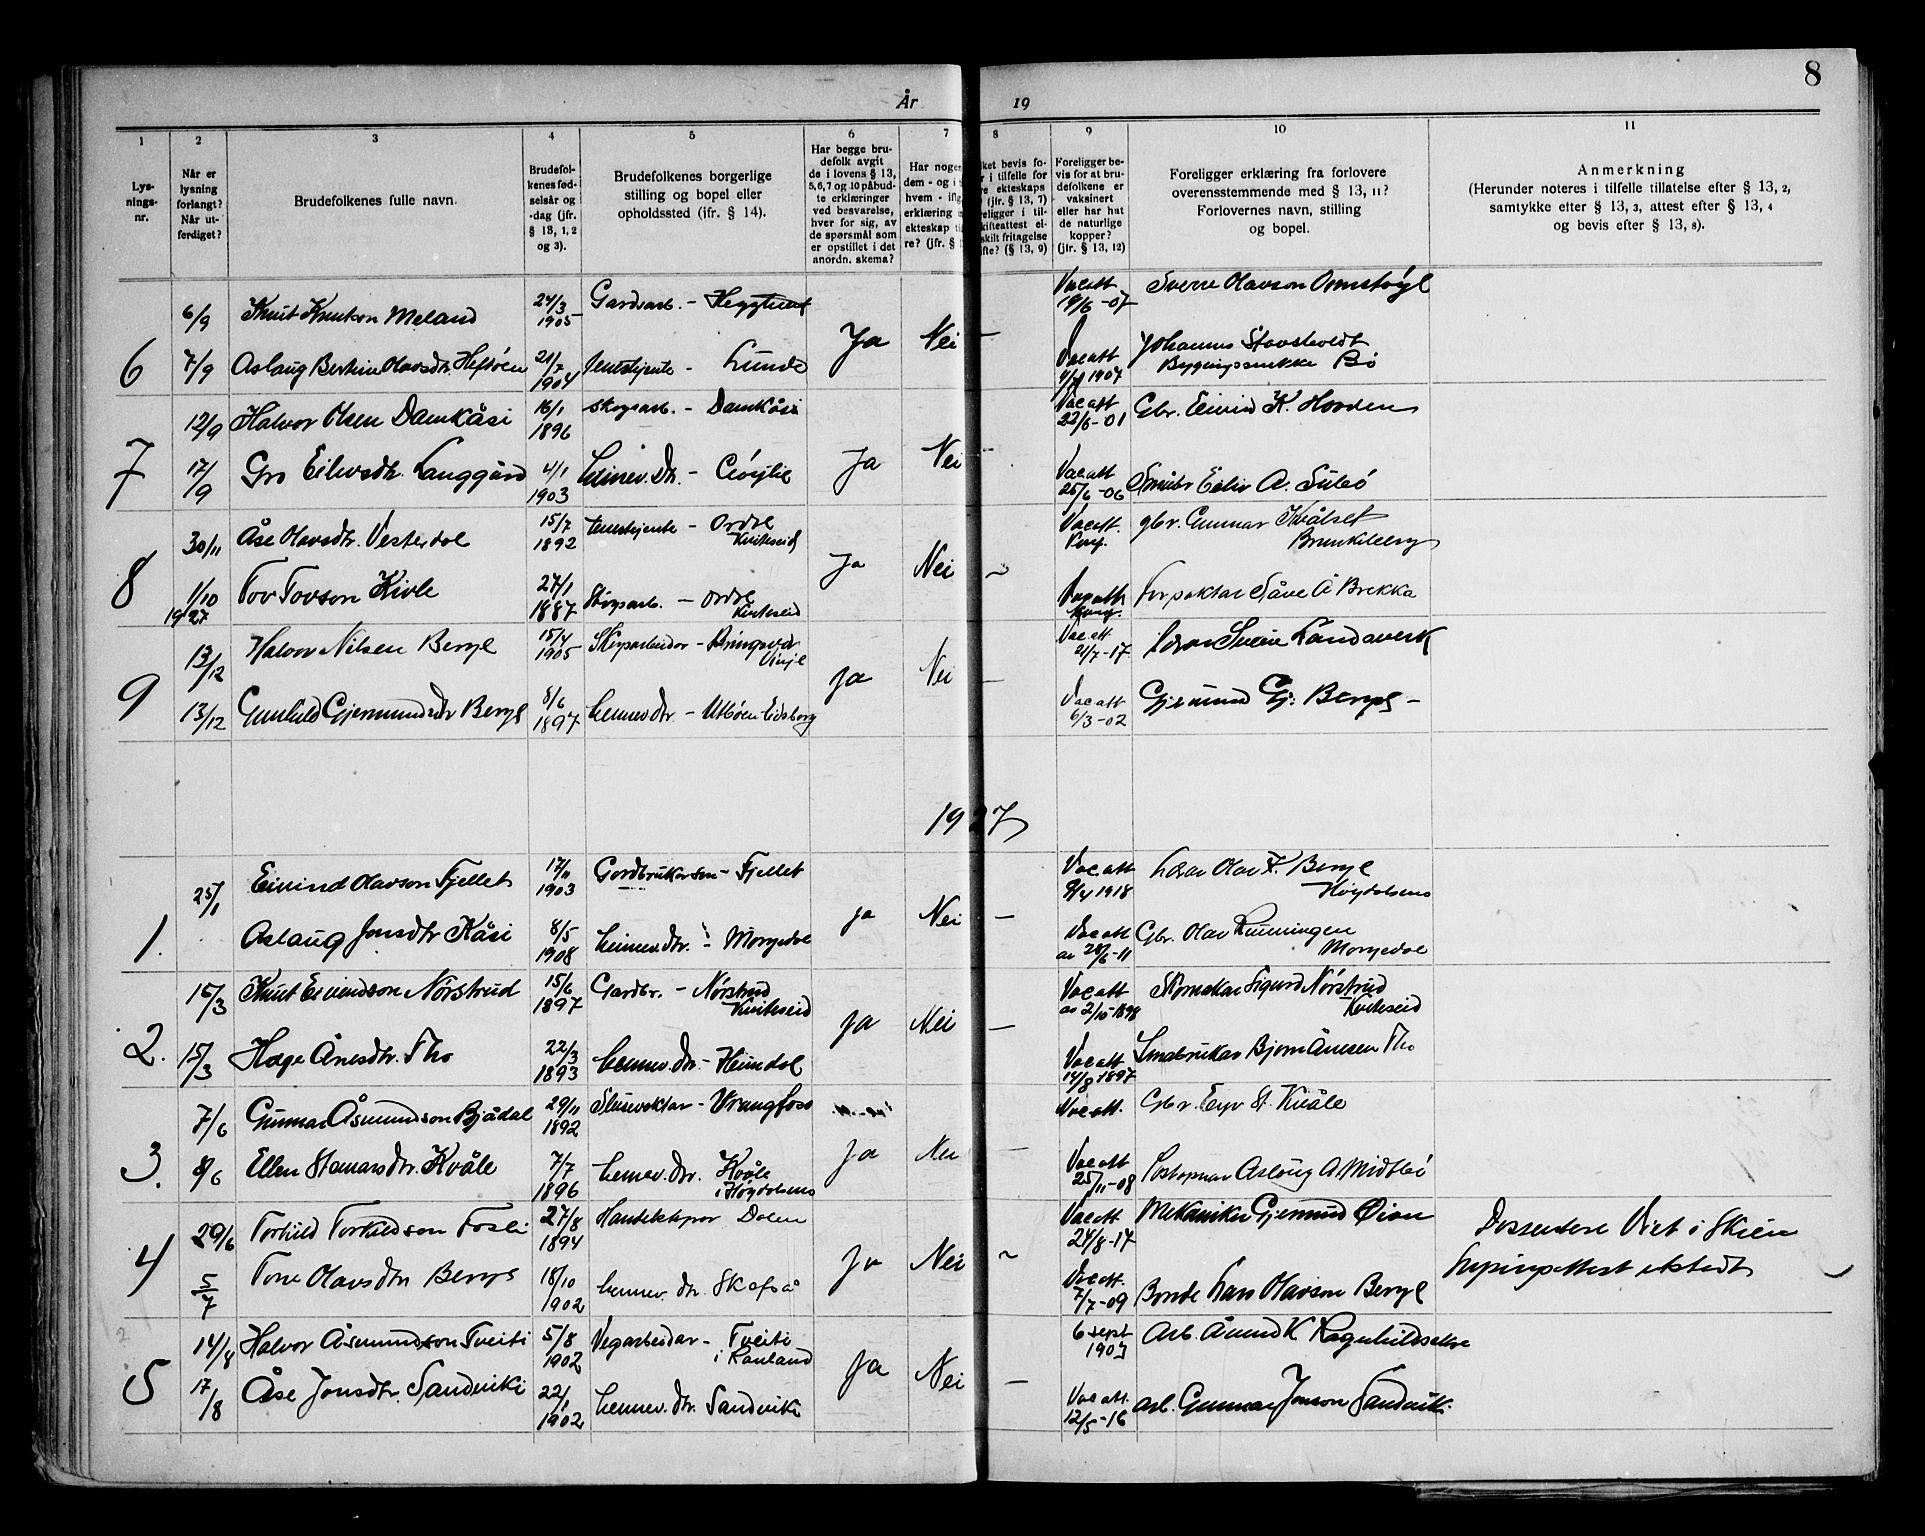 8
År 19
1 2 3 4 5 6 7 8 9 10 11
Lys-
nings-
nr.
Når er
lysning
forlangt?
Når ut-
ferdiget?
Brudefolkenes fulle navn.
Brudefol-
kenes fød-
selsår og
-dag (jfr.
§ 13, 1, 2
og 3).
Brudefolkenes borgerlige
stilling og bopel eller
opholdssted (ifr. § 14).
Har begge bru-
defolk avgit
de i lovens § 13,
5, 6, 7 og 10 påbud-
te erklæringer
ved besvarelse,
hver for sig, av
de spørsmål som
er opstillet i det
anordn. skema?
Har nogen
dem - og i
hvem - ifl.
erklæring
ekteskap ti
re? (jfr. §
ket bevis fo-
r i tilfelle for
re ekteskaps
(jfr. § 13, 7)
religger i til-
kifteattest el-
skilt fritagelse
ifte? (§ 13, 9)
Foreligger be-
vis for at bru-
defolkene er
vaksinert
eller har hat
de naturlige
kopper?
(jfr. § 13, 12)
Foreligger erklæring fra forlovere
overensstemmende med § 13, 11?
Forlovernes navn, stilling
og bopel.
Anmerkning
(Herunder noteres i tilfelle tillatelse efter § 13, 2,
samtykke efter § 13, 3, attest efter § 13, 4
og bevis efter § 13, 8).
6/9 Knut Knutson Meland 24/3 1905 Gardsarb. - Heggtveit Vac att 19/6-07 Sverre Olavson Ormstøyl
6 7/9 Aslaug Bertine Olavsdtr. Heftøen 21/7 1904 Tenestjente - Lunde Ja Nei — Vac att 1907 Johannes Stavsholdt
Bygningssnikke Bø
12/9 Halvor Olsen Damkåsi 16/1 1896 Skogsarb. - Damkåsi Vac att 22/6-01 Gbr. Eivind K. Hovden
7 17/9 Gro Eilevsdtr. Langgård 4/1 1903 heimev. Dtr. - Ja Nei - Vac att 25/6-06 Småbr Eiliv A.
30/11 Åse Olavsdtr. Vesterdal 15/7 1892 tenestejente - Ordal
Kviteseid Vac att. gbr. Gunnar Kvålset
Brunkeberg
8 1/10 1927 Tov Tovson Kivle 27/1 1887 Skogsarb. - Ordal
Kviteseid Ja Nei ~ Vac att Forpaktar Såve Å Brekka
13/12 Halvor Nilsen Berge 15/4 1905 Skogsarbeidar -
Vinje Vac att 21/7-17 Lærar Sverre Landaverk
9 13/12 Gunhild Gjermundsdtr Berge 8/6 1897 heimev dtr. - Utbøen Eidsborg Ja Nei — Vac att 6/3-02 Gjermund Gj. Berge -
1927
25/1 Eivind Olavson Fjellet 17/11 1903 Gardbrukarson - Fjellet Vac att 9/4 1918 Lærar Olav K. Berge
Høydalsmo
1. Aslaug Jonsdtr Kåsi 8/5 1908 heimev. dtr. - Morgedal ja Nei — Vac att av 28/6-11 Gbr. Olav Lunningen
Morgedal
15/3 Knut Eivindson Nørstrud 15/6 1897 Gardbr. - Nørstrud
Kviteseid Vac att av 2/10 1898 Skomakar Sigurd Nørstrud
Kviteseid
2. 15/3 Hæge Ånesdtr. Tho 22/3 1893 heimev. dtr. - Heimdal Ja Nei — Vac att 14/8 1897 Småbrukar Bjørn Ånesen Tho
7/6 Gunnar Åsmundson Bjådal 29/11 1892 Slusevaktar - Vrangfoss Vac att. Gbr. St. Kvåle
3. 8/6 Ellen Steinarsdtr. Kvåle 7/7 1896 heimev. dtr. Kvåle
i Høydalsmo Ja Nei - Vac att 25/11-08 Postopnar Aslaug A Midtbø
29/6 Torkild Torkildson Fosli 27/8 1894 Dalen Vac att 24/8-17 Mekaniker Gjermund Øian Dissentere Viet i Skien
4 5/7 Tone Olavsdtr Berge 18/10 1902 heimev. dtr. Skafså Ja Nei ~ Vac att. 7/7-09 Bonde Lars Olavson Berge Lysingsattest utstedt
14/8 Halvor Åsmundson Tveiti 5/8 1902 Vegarbeidar - Tveiti
i Rauland 6 sept 1907 Arb. Åmund K Ragnhildsekre
5 17/8 Åse Jonsdtr Sandviki 22/1 1902 heimev. dtr. Sandvik Ja Nei — Vac att. 12/5-16 Arb. Gunnar Jonson Sandvik